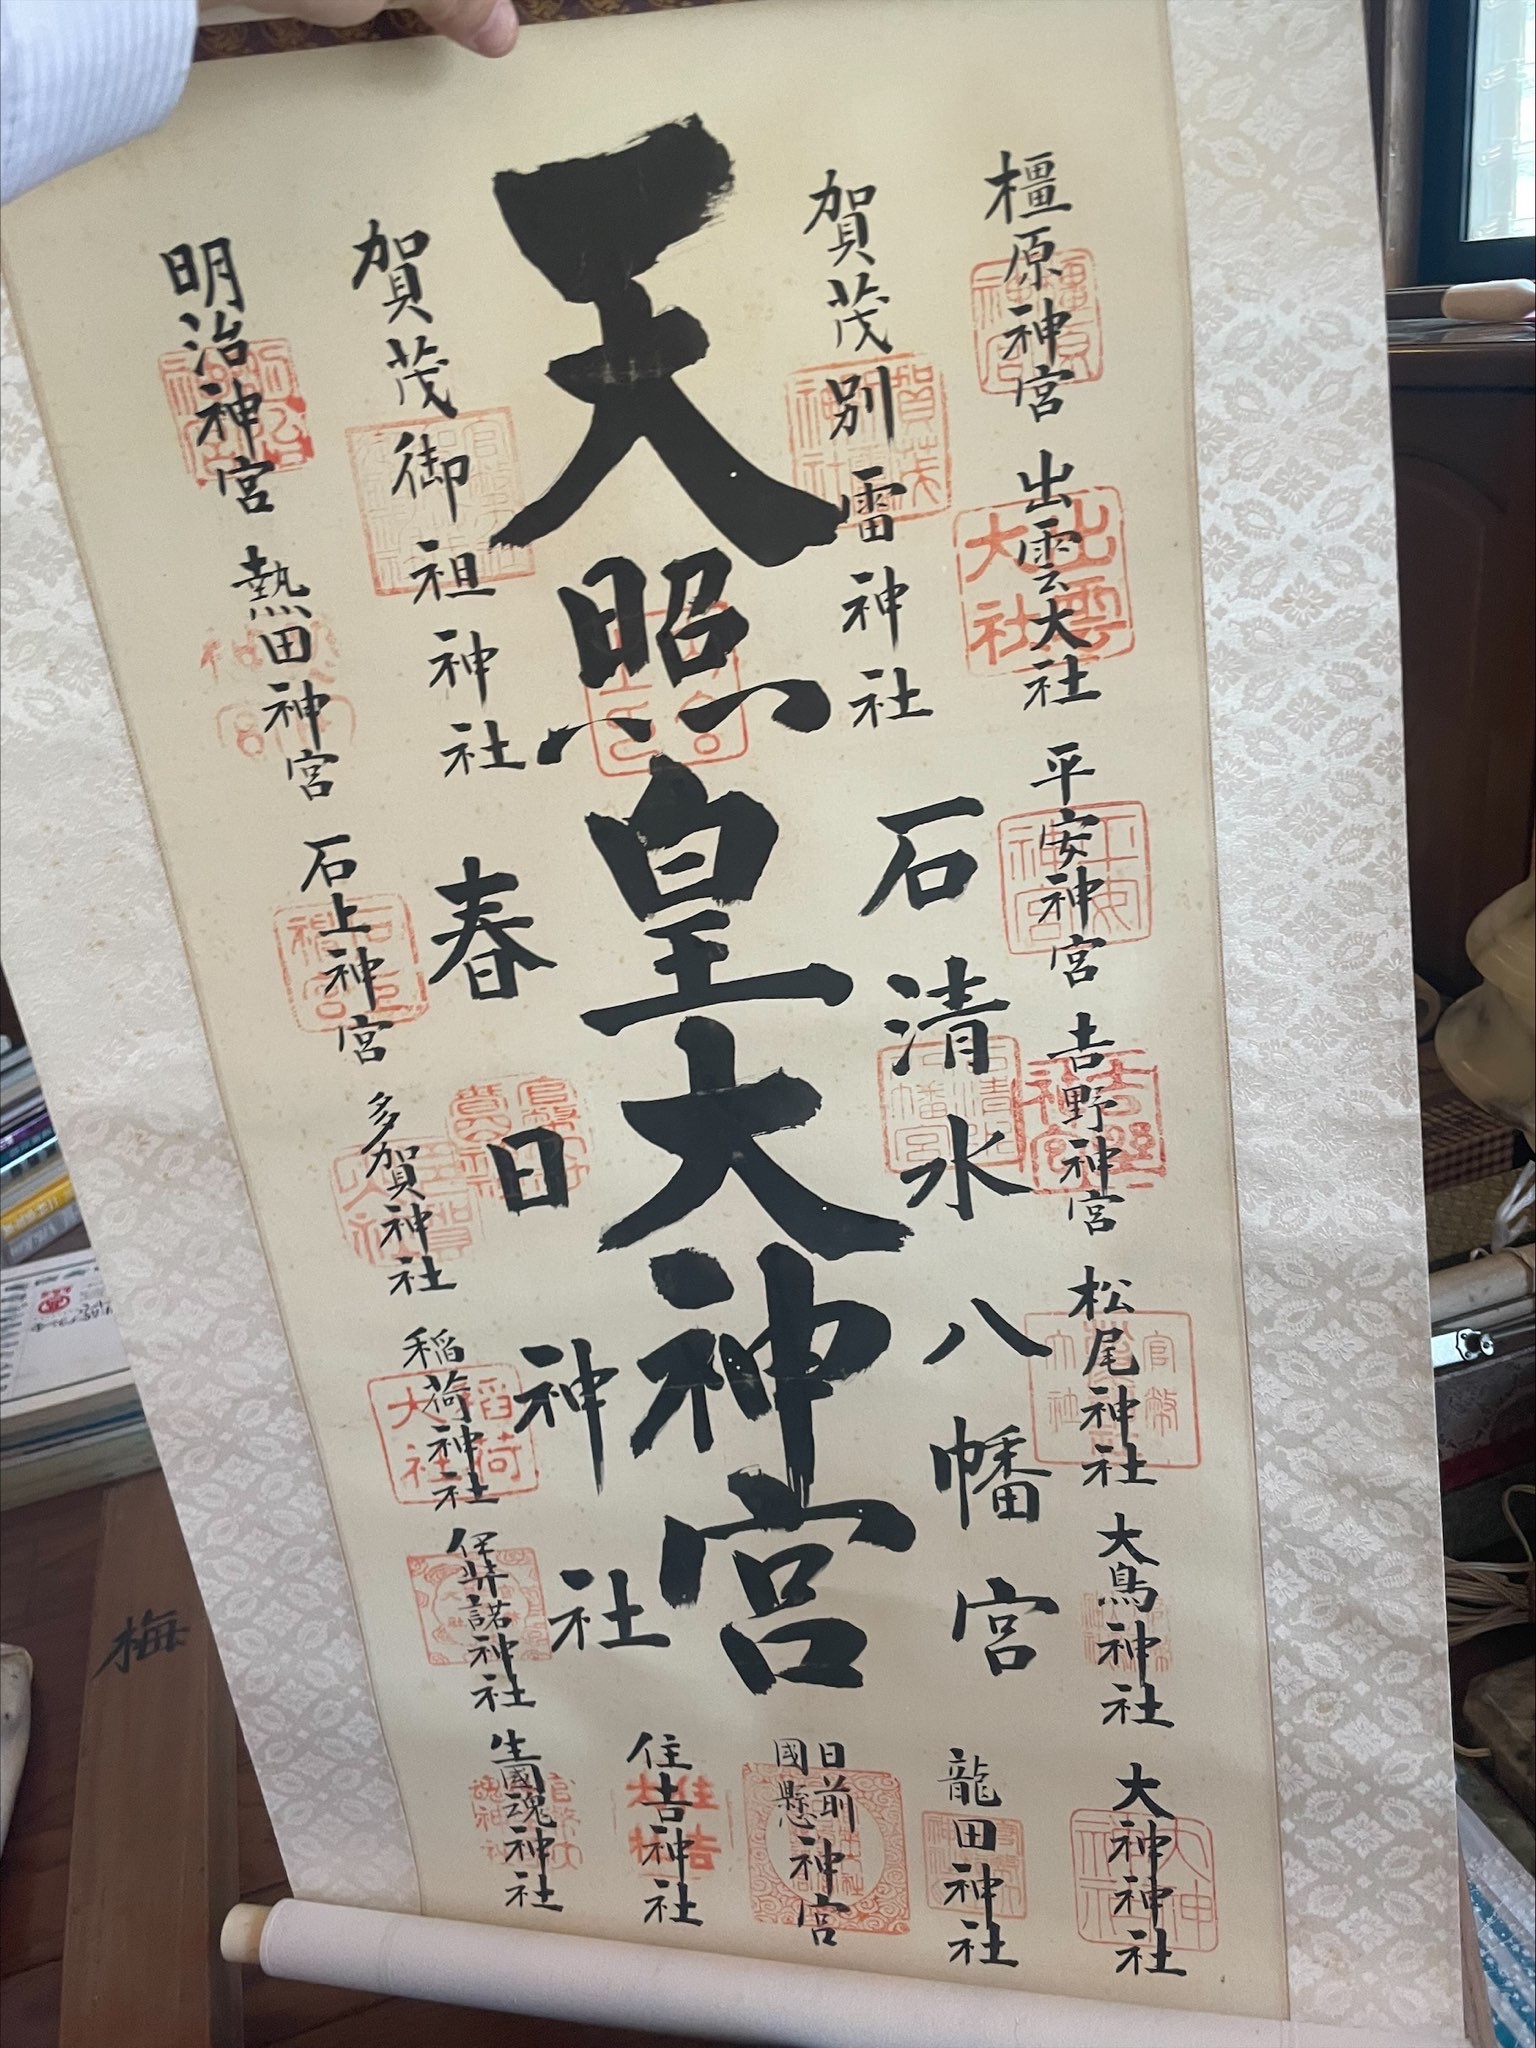 橿原神宮
出雲大社
平安神宮
吉野神宮
松尾神社
大鳥神社
大神神社
賀茂別雷神社
石清水八幡宮
龍田神社
天照皇大神宮
日前
國懸
神宮
賀茂御祖神社
春日神社
住吉神社
明治神宮
熱田神宮
石上神宮
多賀神社
稲荷神社
伊弉諾神社
生國魂神社
出雲
大社
平安
神宮
稲荷
大社
住吉
大社
梅